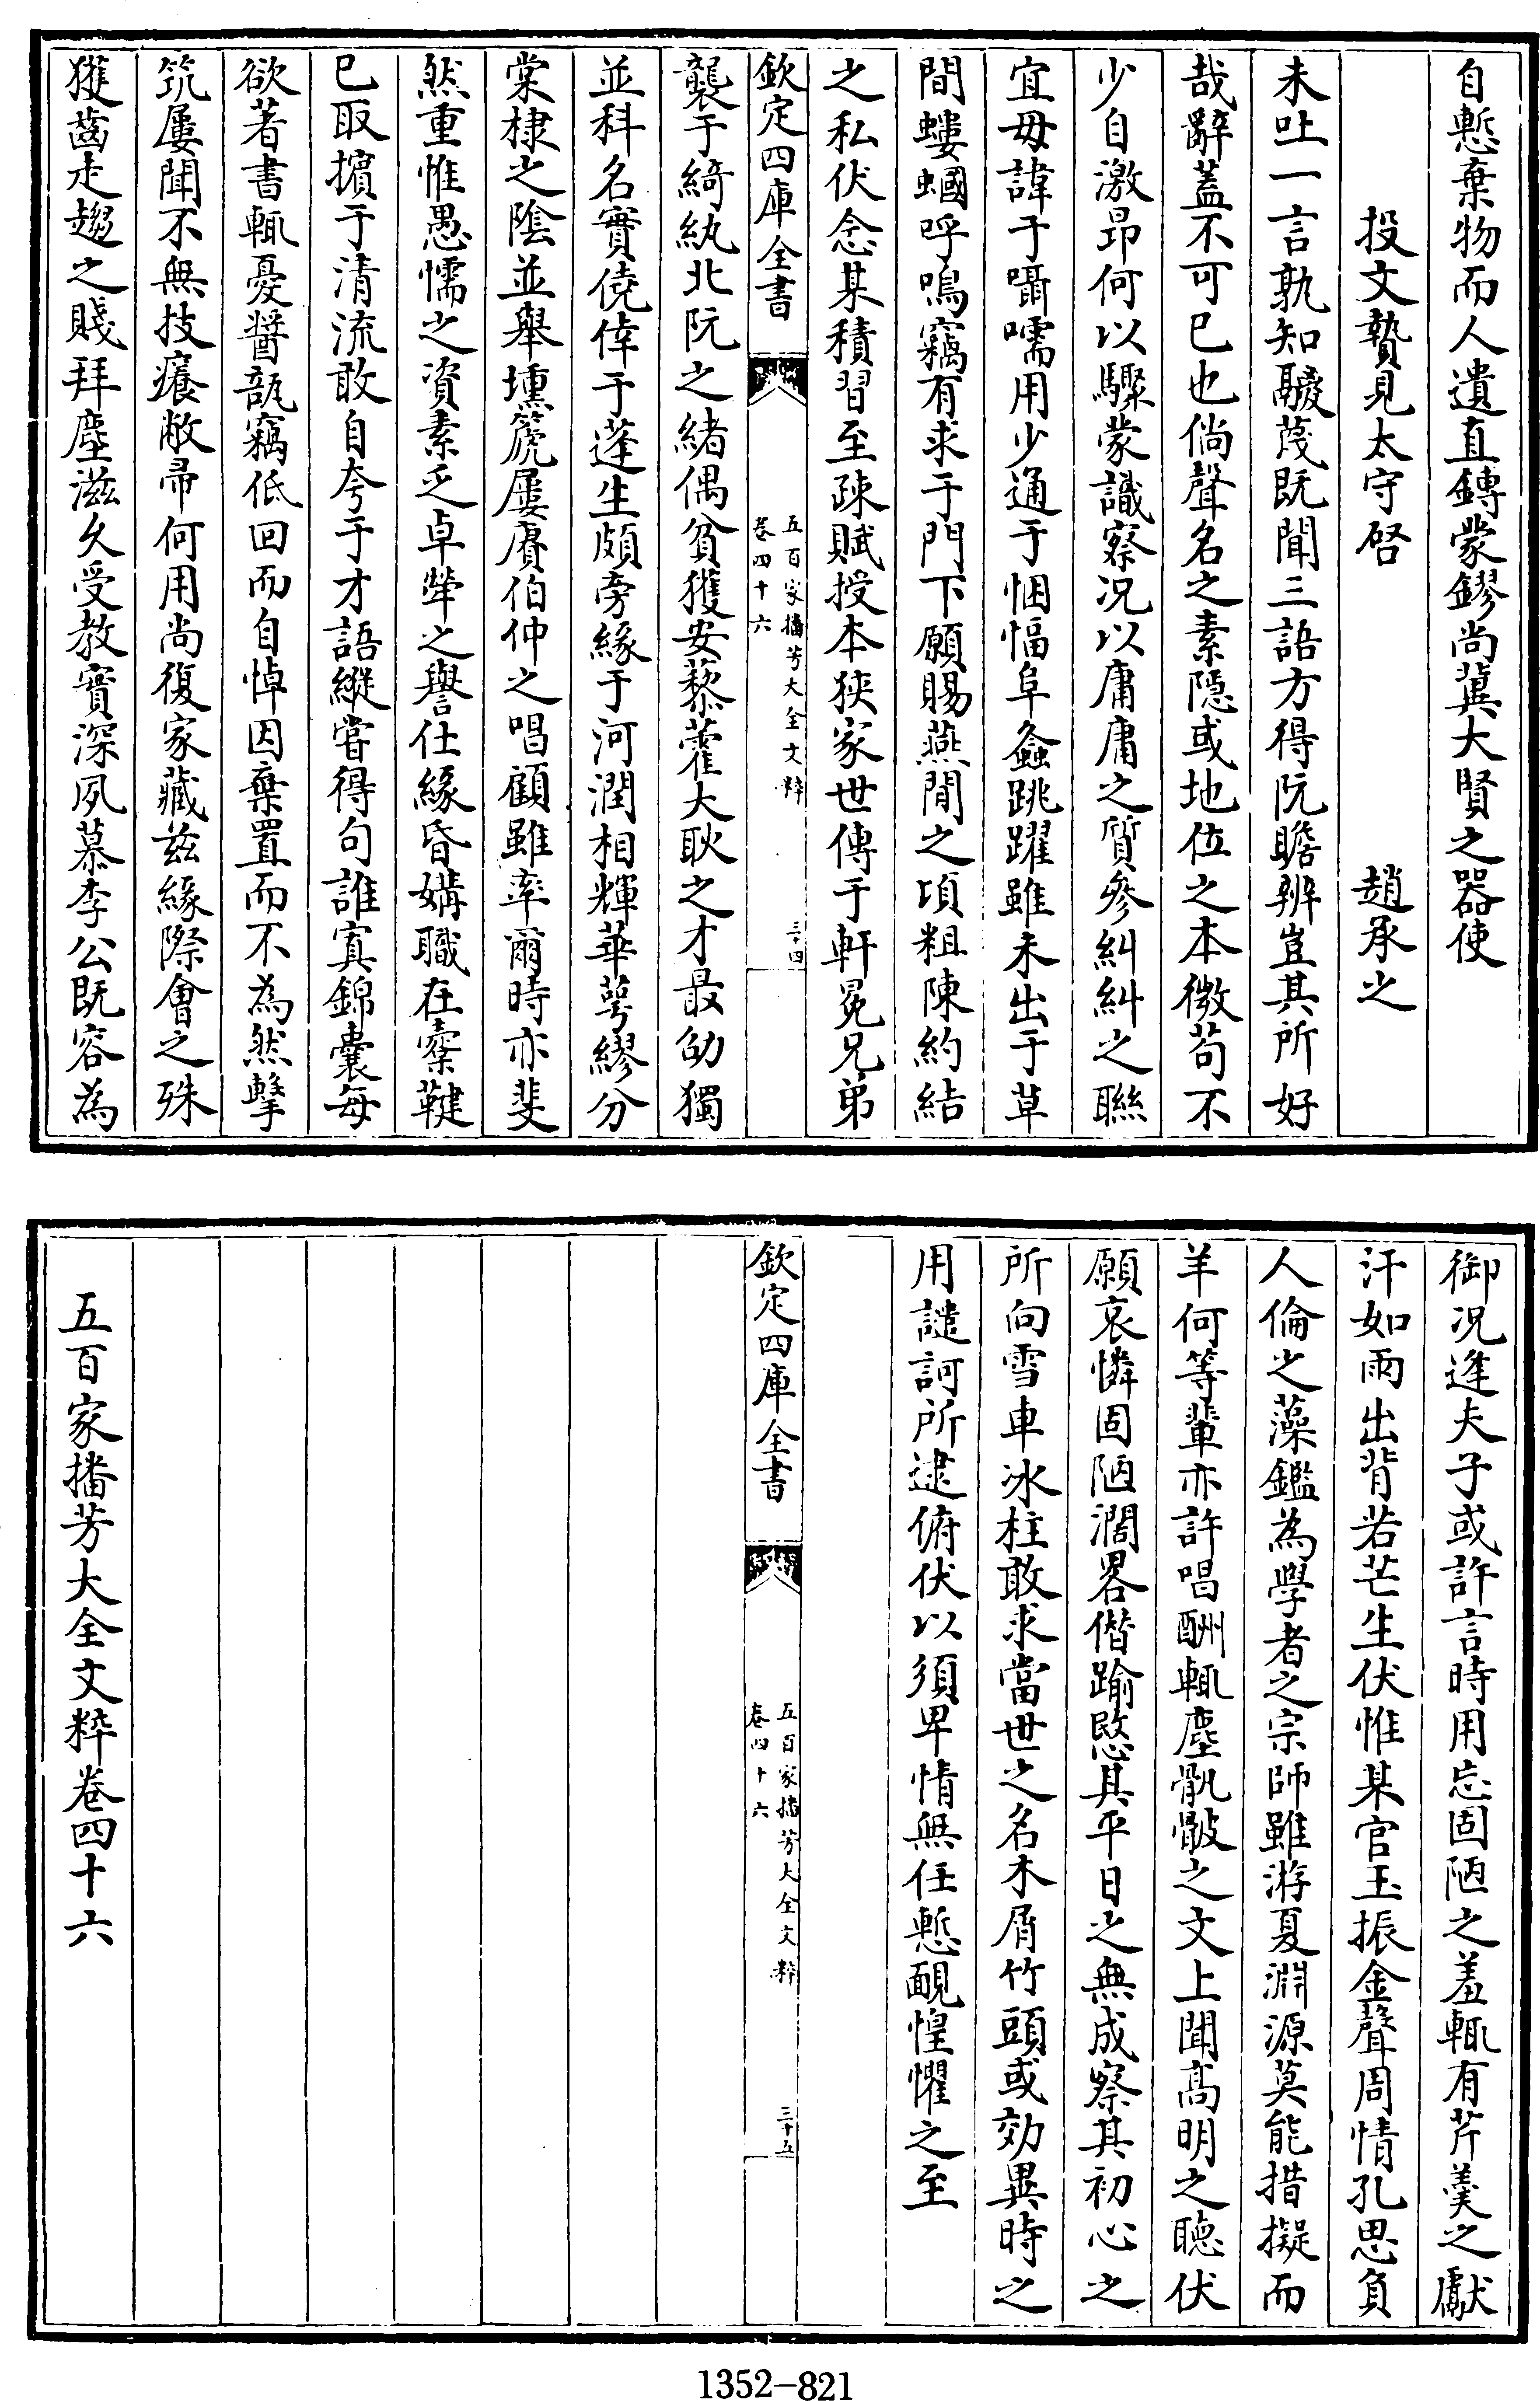 自慙棄物而人遺直鏄蒙鏐尚冀大賢之器使
投文贄見太守啓　趙承之
未吐一言孰知鬷蔑既聞三語方得阮瞻辨豈其所好
哉辭蓋不可已也倘聲名之素隱或地位之本微苟不
少自激昻何以驟蒙識察况以庸庸之質參糾糾之聯
宜毋諱于囁嚅用少通于悃愊阜螽跳躍雖未出于草
間螻蟈呼鳴竊有求于門下願賜燕閒之項粗陳約結
之私伏念某積習至疎賦授本狹家世傳于軒冕兄弟
欽定四庫全書
五百家播芳大全文粹
卷四十六
三十四
襲于綺紈北阮之緒偶貧獲安藜藿大耿之才最劭獨
並科名實僥倖于蓬生頗旁緣于河潤相輝華萼繆分
棠棣之陰並舉壎箎屢賡伯仲之唱顧雖率爾時亦斐
然重惟愚懦之資素乏卓犖之譽仕緣昏媾職在櫜鞬
已取擯于清流敢自夸于才語縱嘗得句誰寘錦囊每
欲著書輒憂醬瓿竊低回而自悼因棄置而不為然擊
筑屢聞不無技癢敝帚何用尚復家藏兹緣際會之殊
獲齒走趨之賤拜塵滋久受教實深夙慕李公既容為
御况逢夫子或許言時用忘固陋之羞輒有芹羮之獻
汗如雨出背若芒生伏惟某官玉振金聲周情孔思負
人倫之藻鑑為學者之宗師雖游夏淵源莫能措擬而
羊何等輩亦許唱酬輒塵骫骳之文上聞髙明之聽伏
願哀憐固陋濶畧僭踰愍其平日之無成察其初心之
所向雪車冰柱敢求當世之名木屑竹頭或効異時之
用譴訶所逮俯伏以須卑情無任慙靦惶懼之至
欽定四庫全書
五百家播芳大全文粹
卷四十六
三十五
五百家播芳大全文粹卷四十六
1352-821